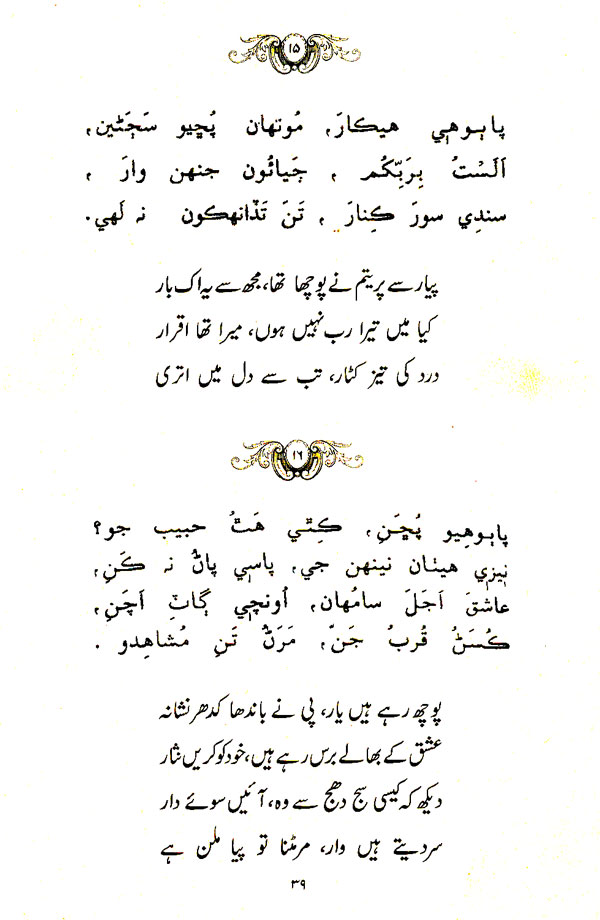 ۱۵
پاٻوهي هيڪارَ، مُوتهان پُڇيو سَڄَڻين،
اَلَسْتُ بِرَبِّکُم ، چَيائُون جنهن وارَ ،
سندِي سورَ ڪِنارَ ، تَنَ تَڏانهڪون نہ لَهي.
پیار سے پریتم نے پوچھا تھا، مجھ سے یہ اک بار
کیا میں تیرا رب نہیں ہوں، میرا تھا اقرار
درد کی تیز کٹار، تب سے دل میں اتری
۱۶
پاٻوهِيو پُڇَنِ، ڪِٿي هَٿُ حبيب جو؟
نيزي هيٺان نينهن جي، پاسي پاڻُ نہ ڪَنِ،
عاشقَ اَجَلَ سامُهان، اُونچي ڳاٽِ اَچَنِ،
ڪُسَڻُ قُربُ جَنِّ، مَرَڻُ تَنِ مُشاهِدو .
پوچھ رہے ہیں یار، پی نے باندھا کدھر نشانہ
عشق کے بھالے برس رہے ہیں، خود کو کریں نثار
دیکھ کہ کیسی سج دھج سے وہ، آئیں سوئے دار
سر دیتے ہیں وار، مرمٹنا تو پیا ملن ہے
۳۹